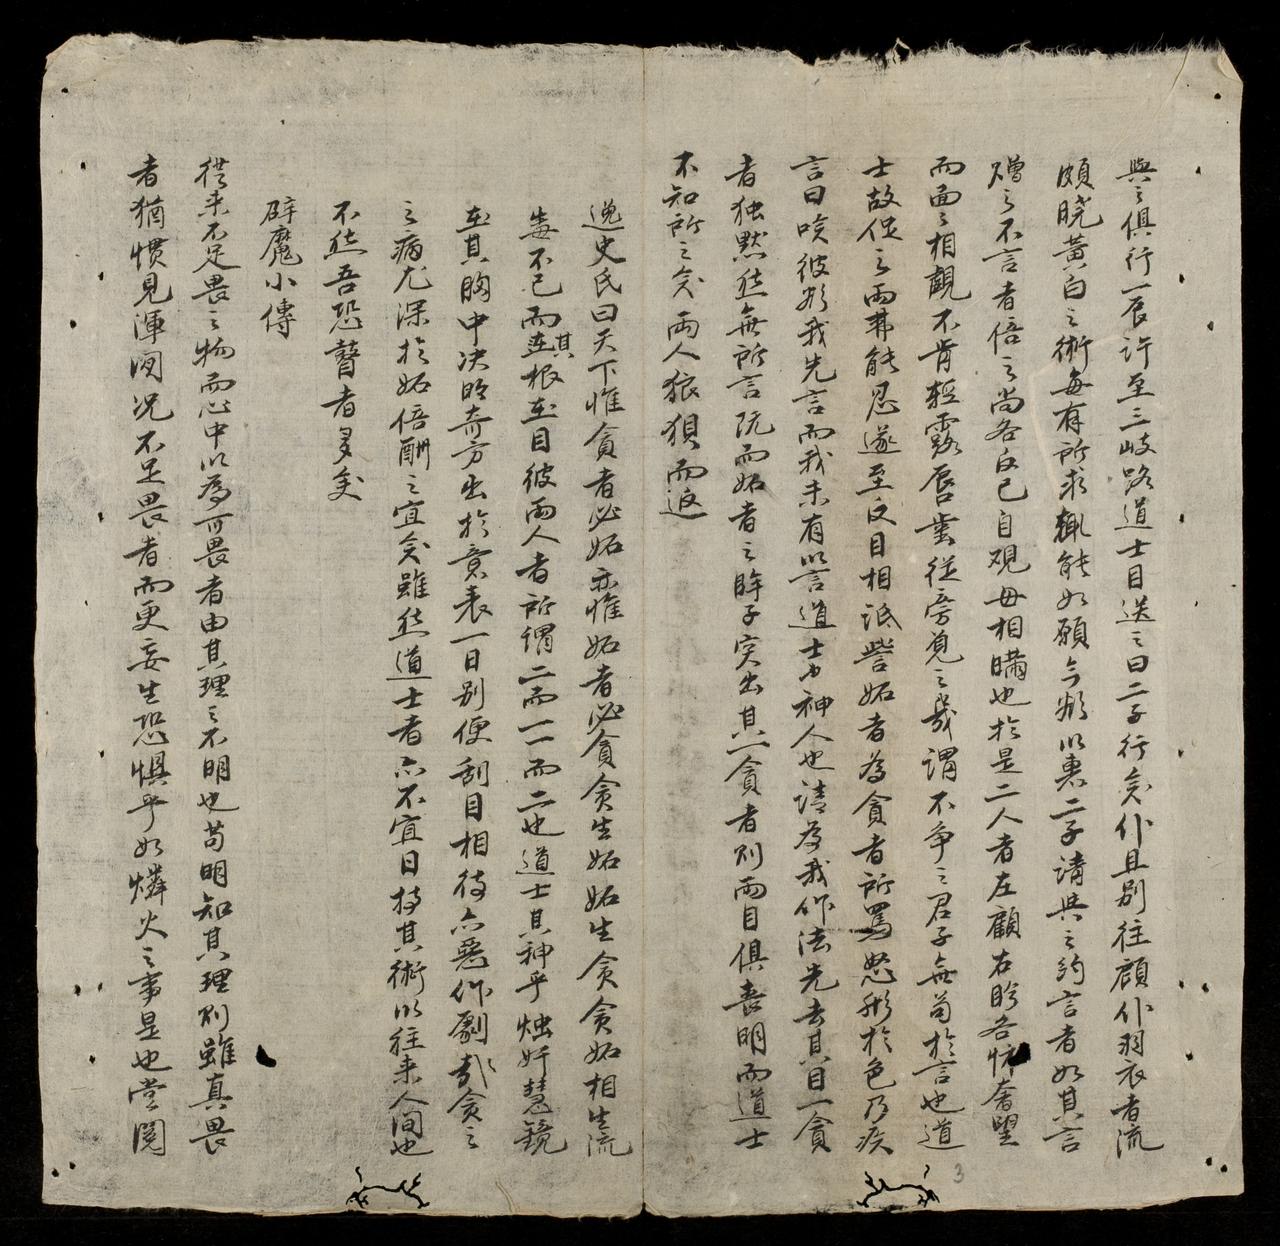 與之俱行一辰許至三岐路道士目送之曰二子行矣仆且別往顧仆羽衣者流
頗晓黃白之術每有所求輒能如願今欲以惠二子請與之約言者如其言
贈之不言者倍之尚各反己自覌毋相瞞也於是二人者左顧右盻各怀奢望
而面之相觀不肯輕露唇齒從旁覓之幾謂不争之君子無苟於言也道
士故促之兩弗能忍遂至反目相詆訾妬者為貪者所罵怒形於色乃疾
言曰唉彼欲我先言而我未有以言道士乃神人也請為我作法先去其目一貪
者独默然無所言既而妬者之眸子突出其一貪者則兩目俱丧明而道士
不知所之矣兩人狼狽而返
逸史氏曰天下惟貪者必妬亦惟妬者必貪貪生妬妬生貪貪妬相生流
毒不已而其根在目彼兩人者所謂二而一一而二也道士其神乎燭奸慧鏡
在其胸中决眥奇方出於意表一日別便刮目相待亦惡作劇哉貪之
之病尤深於妬倍酬之宜矣雖然道士者亦不宜日持其術以往来人间也
不然吾恐瞽者多矣
辟魔小傳
從来不足畏之物而心中以為可畏者由其理之不明也苟明知其理則雖真畏
者猶慣見渾閑况不足畏者而更妄生恐懼乎如燐火之事是也嘗閱